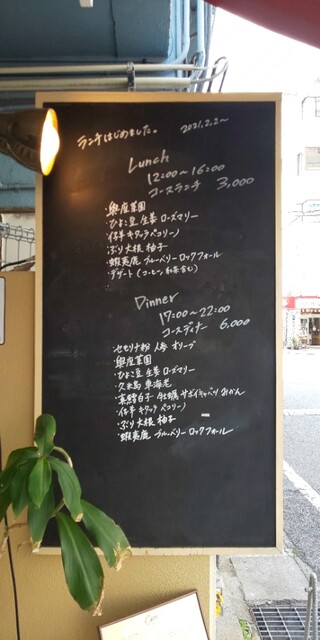 ランチはじめました。 2021.2.2〜
Lunch
12:00〜16:00
コースランチ 3,000
・奥座菜園
・ひよこ豆 生姜 ローズマリー
・仔羊 キタッラ ペコリーノ
・ぶり大根 柚子
・蝦夷鹿 ブルーベリー ロックフォール
・デザート (コーヒー, 紅茶含む)
Dinner
17:00〜22:00
コースディナー 6,000
・セモリナ粉 人参 オリーブ
・奥座菜園
・ひよこ豆 生姜 ローズマリー
・久米島 車海老
・真鱈白子 牡蠣 サボイキャベツ みかん
・仔羊 キタッラ ペコリーノ
・ぶり大根 柚子
・蝦夷鹿 ブルーベリー ロックフォール